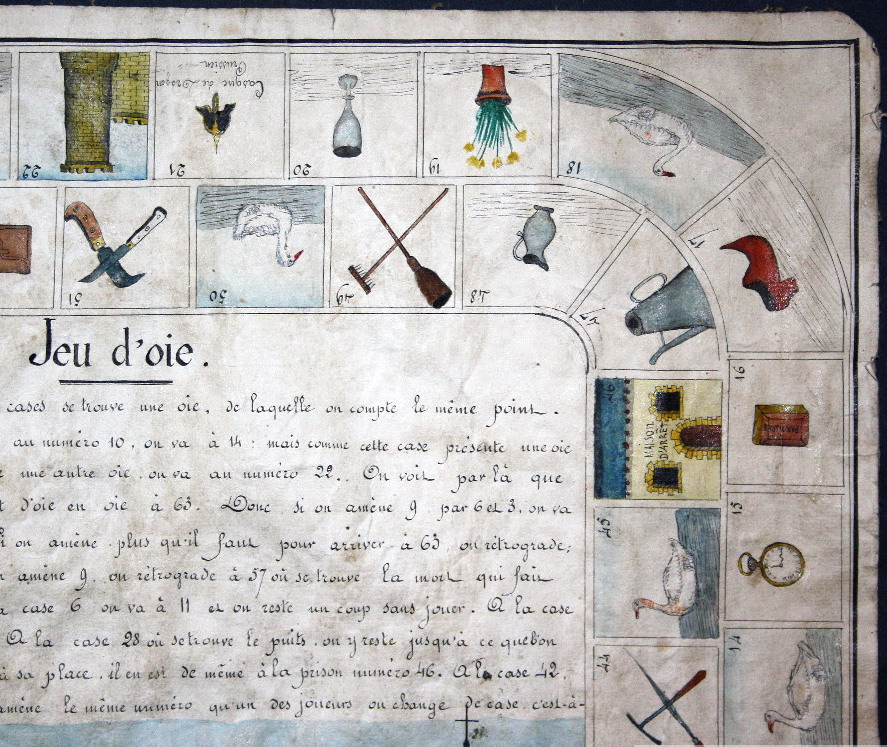 22
21
Casque de Dragon
Prussien
20
19
18
51
50
49
48
47
17
16
46
MAISON
D'ARRÊT
15
45
14
44
Jeu d'oie.
cases se trouve une oie, de laquelle on compte le même point.
au numéro 10, on va à 14 : mais comme cette case présente une oie
une autre oie, on va au numéro 22.. On voit par là que
d'oie en oie à 63. Donc si on amène 9 par 6 et 3, on va
on amène plus qu'il faut pour arriver à 63, on rétrograde;
amène 9, on rétrograde à 57 où se trouve la mort qui fait
case 6 on va à 11 et on reste un coup sans jouer. A la case
A la case 28 où se trouve le puits, on y reste jusqu'à ce que l'on
à sa place, il en est de même à la prison numéro 46. A la case 42,
amène le même numéro qu'un des joueurs on change de case, c'est-à-